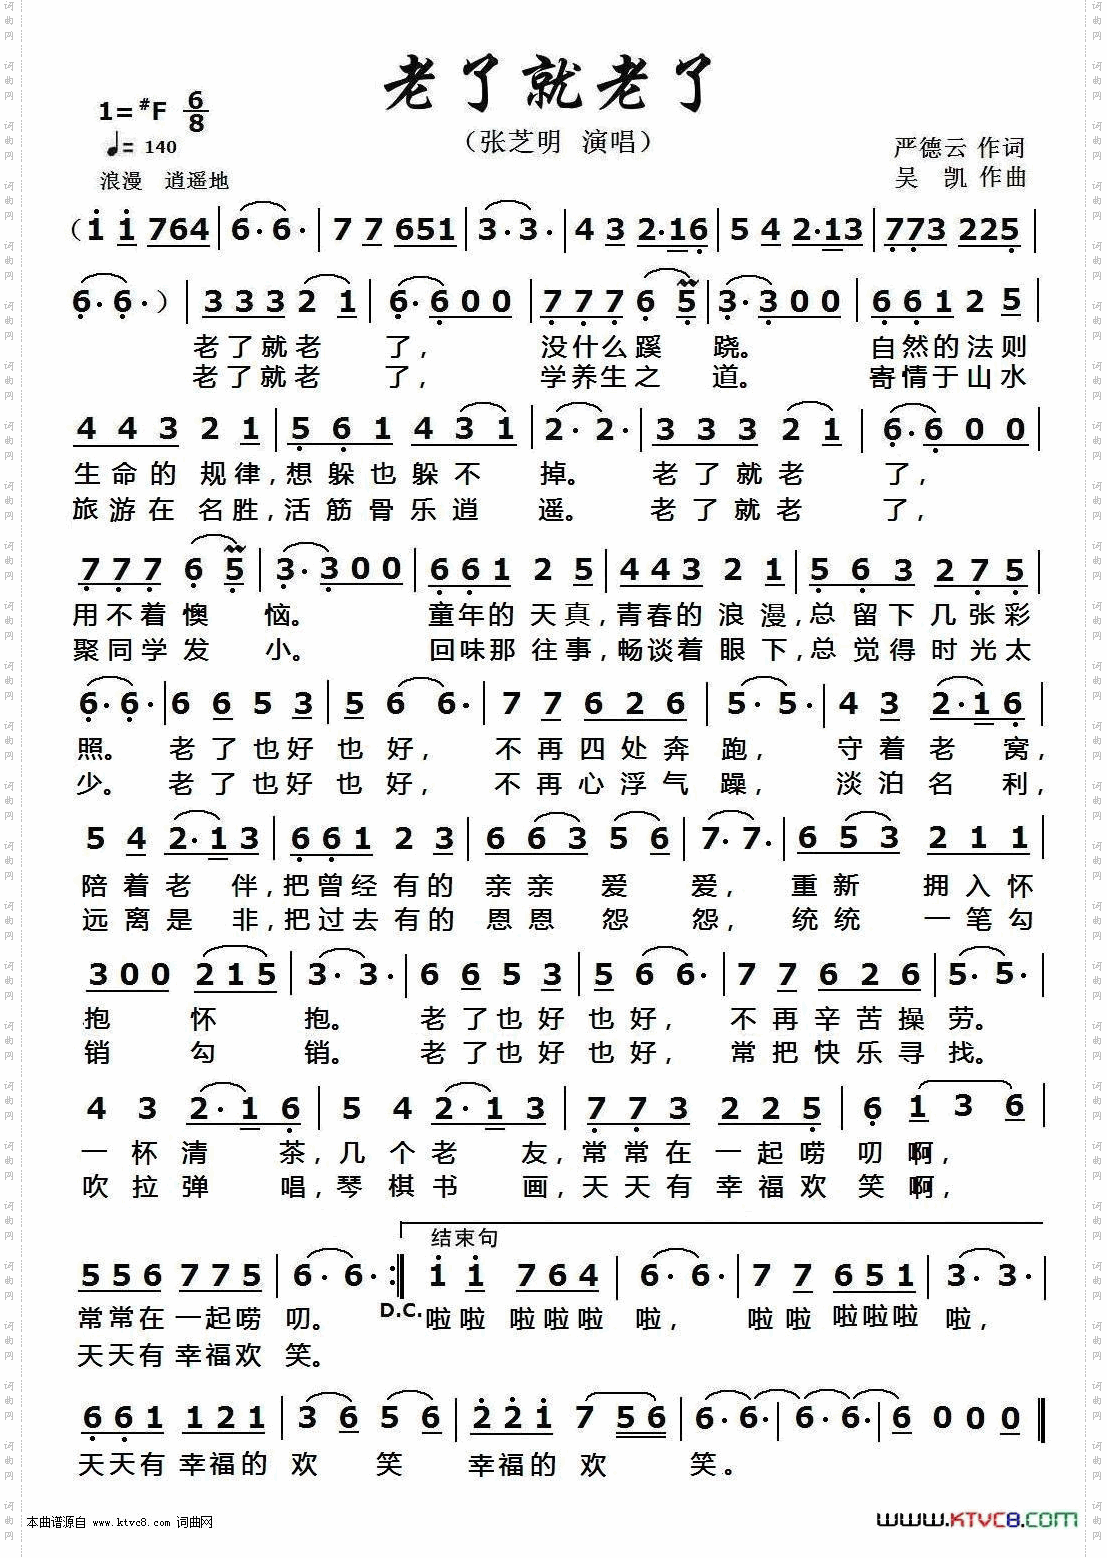 老了就老了
1=#F 6/8
（张芝明 演唱）
♩= 140
严德云 作词
浪漫 逍遥地
吴 凯 作曲
（i i 764 | 6· 6· | 7 7 651 | 3· 3· | 4 3 2·16 | 5 4 2·13 | 773 225 |
6· 6· ）| 333 2 1 | 6· 600 | 777 6 5 | 3· 300 | 661 2 5 |
老了就老 了， 没什么蹊 跷。 自然的法则
老了就老 了， 学养生之 道。 寄情于山水
443 2 1 | 561 431 | 2· 2· | 333 2 1 | 6· 600 |
生命的规律，想躲也躲不 掉。 老了就老 了，
旅游在名胜，活筋骨乐逍 遥。 老了就老 了，
777 6 5 | 3· 300 | 661 2 5 | 443 2 1 | 563 275 |
用不着懊 恼。 童年的天真，青春的浪漫，总留下几张彩
聚同学发 小。 回味那往事，畅谈着眼下，总觉得时光太
6· 6· | 6 6 5 3 | 5 6 6· | 7 7 626 | 5· 5· | 4 3 2·16 |
照。 老了也好也好， 不再四处奔 跑， 守着老 窝，
少。 老了也好也好， 不再心浮气 躁， 淡泊名 利，
5 4 2·13 | 661 2 3 | 663 5 6 | 7· 7· | 653 211 |
陪着老 伴，把曾经有的 亲亲 爱 爱， 重新 拥入怀
远离是 非，把过去有的 恩恩 怨 怨， 统统 一笔勾
300 215 | 3· 3· | 6 6 5 3 | 5 6 6· | 7 7 626 | 5· 5· |
抱 怀 抱。 老了也好也好， 不再辛苦操劳。
销 勾 销。 老了也好也好， 常把快乐寻找。
4 3 2·16 | 5 4 2·13 | 773 225 | 6 1 3 6 |
一杯清 茶，几个老 友，常常在一起唠叨啊，
吹拉弹 唱，琴棋书 画，天天有幸福欢笑啊，
结束句
556 775 | 6· 6· :‖ i i 764 | 6· 6· | 7 7 651 | 3· 3· |
常常在一起唠 叨。 D.C. 啦啦 啦啦啦 啦， 啦啦 啦啦啦 啦，
天天有幸福欢 笑。
661 121 | 3 6 5 6 | 22i 7 56 | 6· 6· | 6· 6· | 6 0 0 0 ‖
天天有幸福的 欢 笑 幸福的 欢 笑。
本曲谱源自 www.ktvc8.com 词曲网
www.KTVC8.com